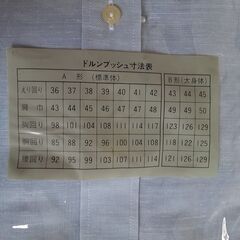 ドルンブッシュ寸法表
A 形 (標準体) B形(大身体)
えり回り 36 37 38 39 40 41 42 43 44 45
肩巾 43 44 45 46 47 48 49 49 50
胸回り 98 101 104 108 111 114 117 123 126 129
胴回り 88 91 94 100 103 107 111 118 122 126
腰回り 92 95 99 103 107 111 114 121 126 129